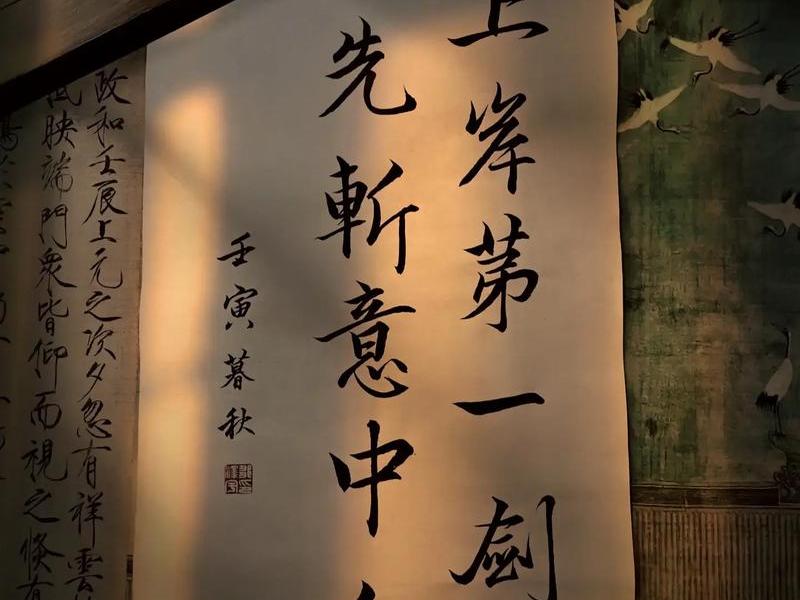 上岸第一劍
先斬意中
壬寅暮秋
政和壬辰上元之次夕忽有祥雲
映端門眾皆仰而視之倏有